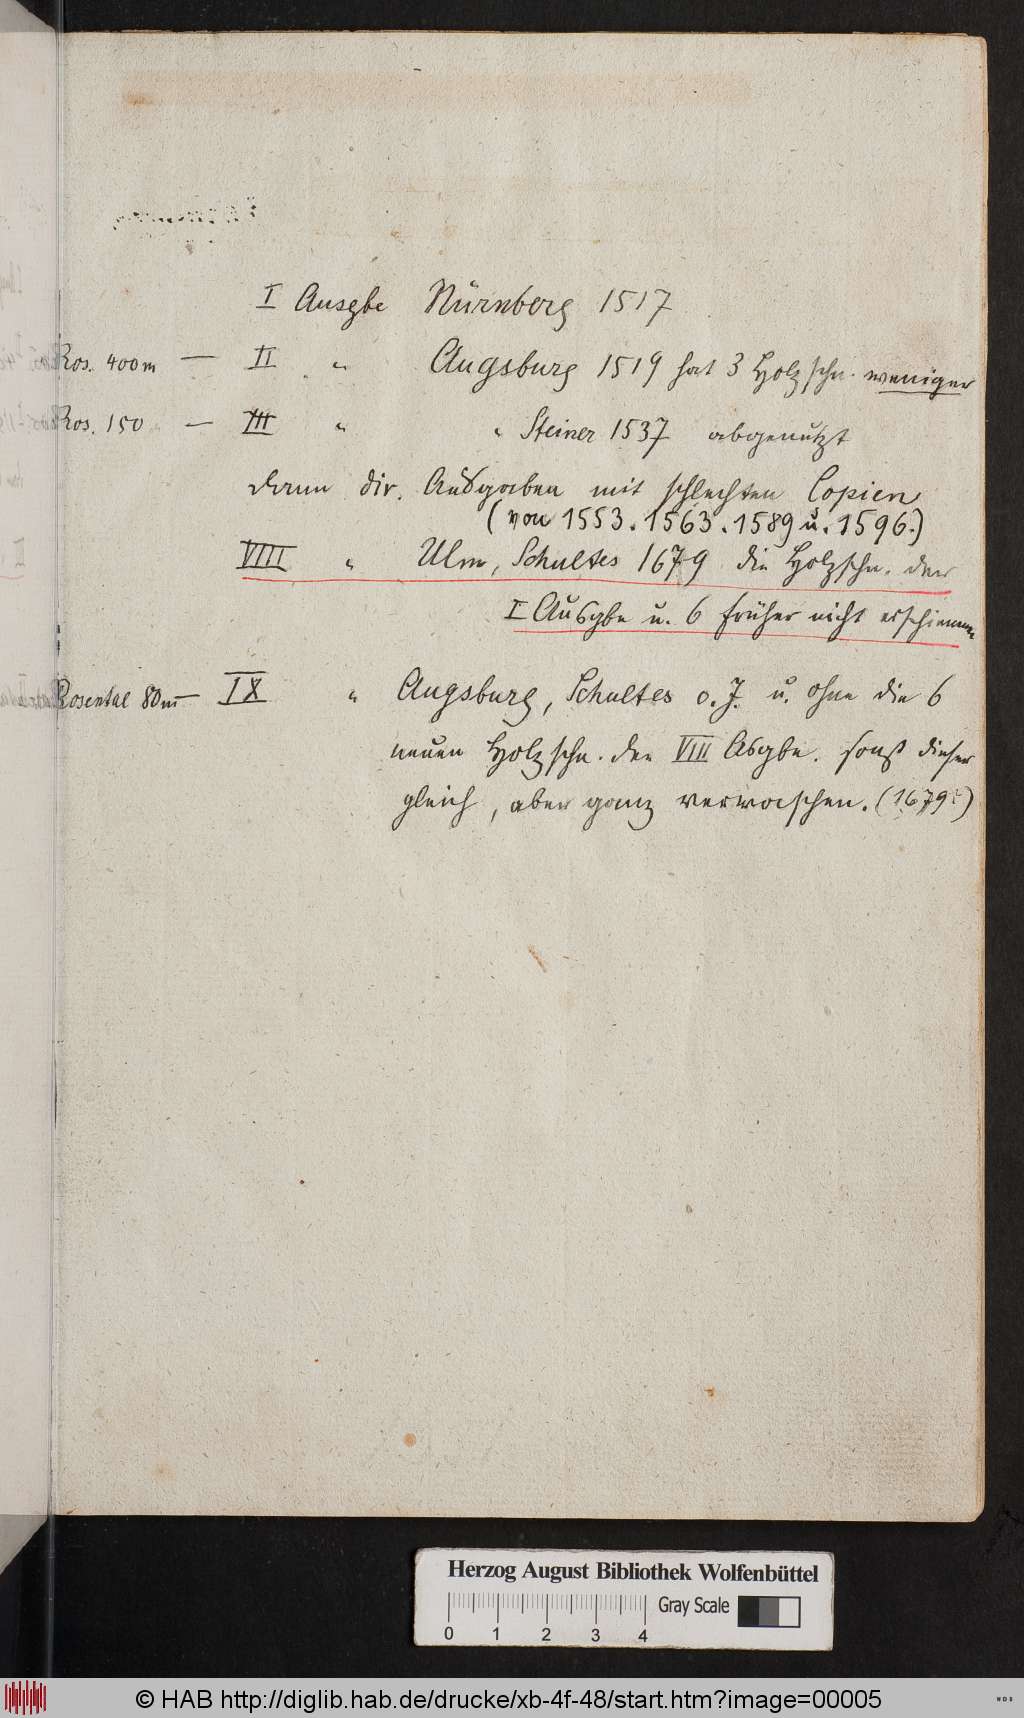 I Ausgbe Nürnberg 1517
Ros. 400 m — II " Augsburg 1519 hat 3 Holzschn. weniger
Ros. 150 — III " " Steiner 1537 abgenutzt
dann div. Ausgaben mit schlechten Copien
(von 1553. 1563. 1589 u. 1596.)
VIII " Ulm, Schultes 1679 die Holzschn. der
I Ausgbe u. 6 früher nicht erschienene
Rosental 80 m — IX " Augsburg, Schultes o. J. u. ohne die 6
neuen Holzschn. der VIII Ausgbe. sonst dieser
gleich, aber ganz verwaschen. (1679?)
Herzog August Bibliothek Wolfenbüttel
Gray Scale
0 1 2 3 4
© HAB http://diglib.hab.de/drucke/xb-4f-48/start.htm?image=00005